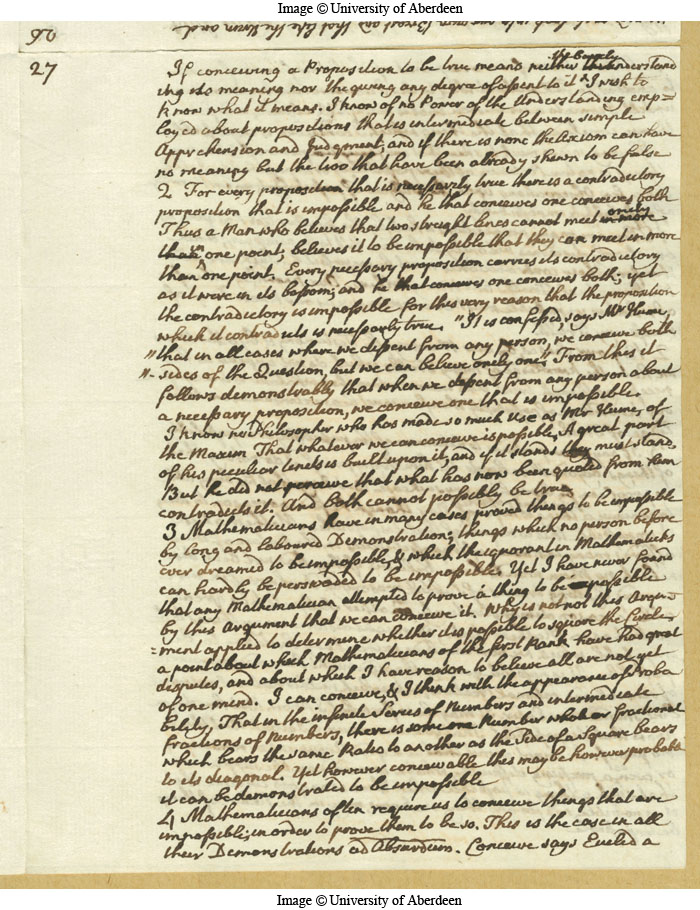 Image © University of Aberdeen
26
27
If conceiving a Proposition to be true means neither the barely understand
ing its meaning nor the giving any degree of assent to it I wish to
know what it means. I know of no Power of the Understanding emp=
loyed about propositions that is intermediate between simple
Apprehension and Judgment, and if there is none the Axiom can have
no meaning but the two that have been already shewn to be false
2 For every proposition that is necessarily true there is a contradictory
proposition that is impossible and he that conceives one conceives both
Thus a Man who believes that two streight lines cannot meet in more
than in one point, believes it to be impossible that they can meet in more
than one point. Every necessary proposition carries its contradictory
as it were in its bossom; and he that conceives one conceives both; yet
the contradictory is impossible for this very reason that the proposition
which it contradicts is necessarly true. "It is confessed, says Mr Hume,
"that in all cases where we dissent from any person, we conceive both
"-sides of the Question, but we can believe onely one". From this it
follows demonstrably that when we dissent from any person about
a necessary proposition, we conceive one that is impossible.
I know no Philosopher who has made so much use as Mr Hume, of
the Maxim That whatever we can conceive is possible. A great part
of his peculiar tenets is built upon it, and if it stands they must stand
But he did not perceive that what has now been quoted from him
contradicts it. And both cannot possibly be true.
3 Mathematicians have in many cases proved things to be impossible
by long and laboured Demonstration; things which no person before
ever dreamed to be impossible, & which the ignorant in Mathematicks
can hardly be perswaded to be impossible. Yet I have never found
that any Mathematician attempted to prove a thing to be possible
by this Argument that we can conceive it. Why is not not this Argu-
=ment applied to determine whether it is possible to square the Circle,
a point about which Mathematicians of the first Rank have had great
disputes, and about which I have reason to believe all are not yet
of one mind. I can conceive, & I think with the appearance of Proba
bility, That in the infinite Series of Numbers and intermediate
fractions of Numbers, there is some one Number whole or fractional
which bears the same Ratio to another as the Side of a Square bears
to its diagonal. Yet however conceivable this may be however probable
it can be demonstrated to be impossible
4 Mathematicians often require us to conceive things that are
impossible; in order to prove them to be so. This is the case in all
their Demonstrations ad Absurdum. Conceive says Euclid a
Image © University of Aberdeen